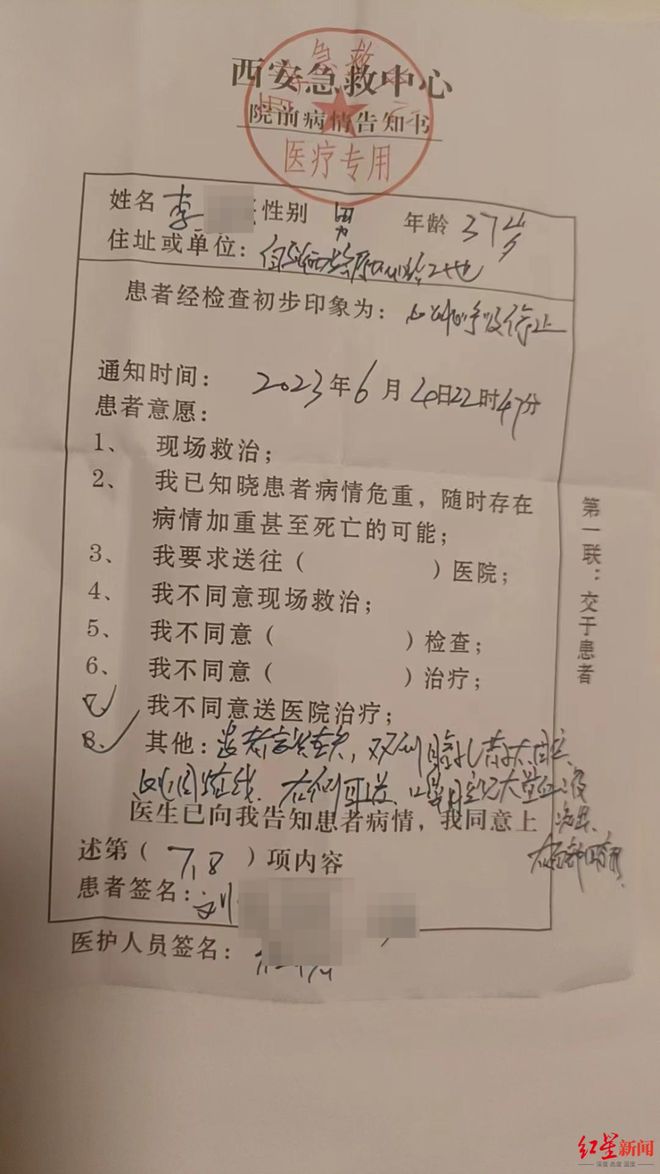 西安急救中心
院前病情告知书
急救
医疗专用
姓名 李 性别 男 年龄 37岁
住址或单位：
患者经检查初步印象为： 心跳呼吸停止
通知时间： 2023年6月4日22时47分
患者意愿：
1、 现场救治；
2、 我已知晓患者病情危重，随时存在
病情加重甚至死亡的可能；
3、 我要求送往（ ）医院；
4、 我不同意现场救治；
5、 我不同意（ ）检查；
6、 我不同意（ ）治疗；
7、 我不同意送医院治疗；
8、 其他： 患者意识丧失，双侧瞳孔散大固定
医生已向我告知患者病情，我同意上
述第（ 7,8 ）项内容
患者签名： 刘
医护人员签名：
第一联：交于患者
红星新闻
深度 态度 温度